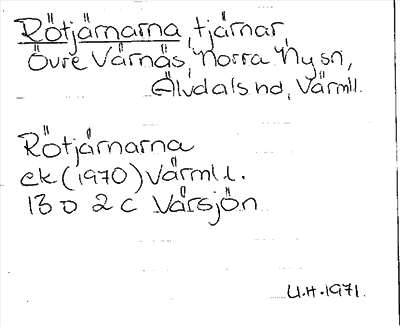 Rötjärnarna, tjärnar,
Övre Värnäs, Norra Ny sn,
Älvdals hd, Värml.
Rötjärnarna
ek (1970) Värml l.
13 D 2 c Vårsjön
U.H. 1971.